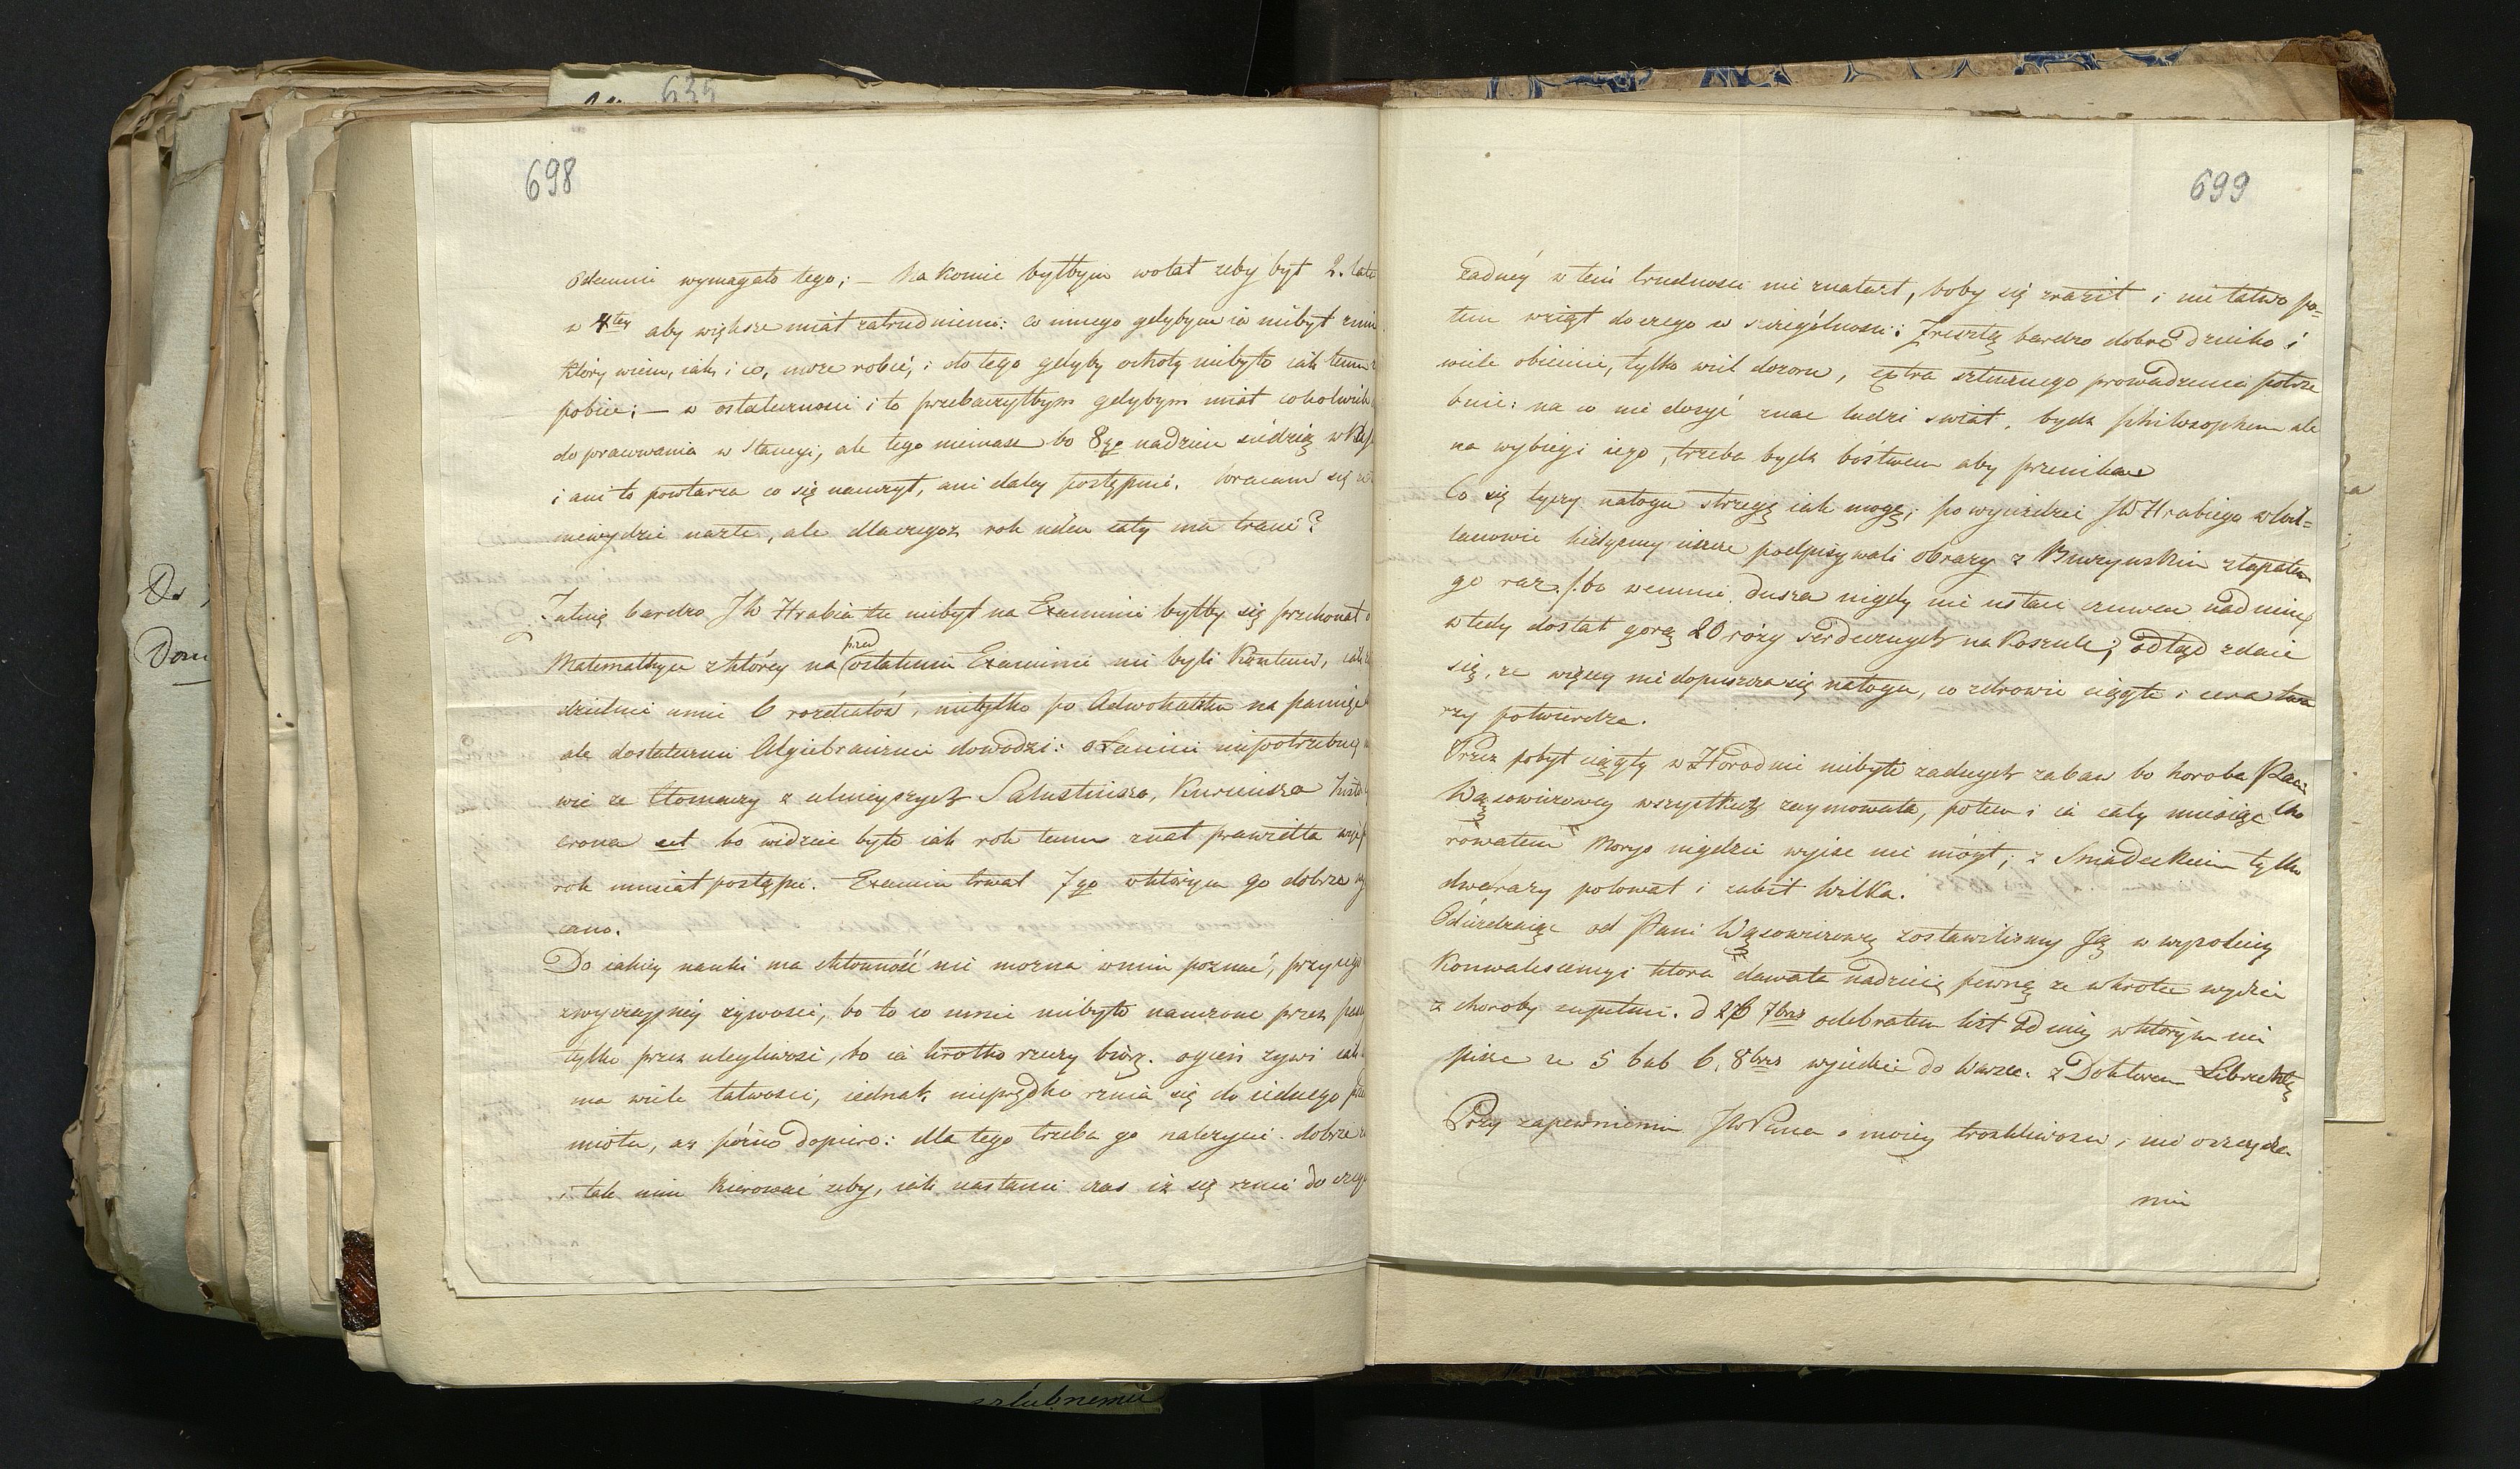 635
698
odemnie wymagało tego; — Na koniec byłbym wolał żeby był 2. lata
w 4tey aby większe miał zatrudnienie: co innego gdybym ia niebył
który wiem, iak i co, może robić, i do tego gdyby ochoty niebyło iak temu
pobiec; — w ostateczności i to przebaczyłbym gdybym miał cokolwiek
do pracowania w Stancyi, ale tego niemasz bo 8 go nadzien siedzią w
i ani to powtarza co się nauczył, ani daley postąpić. Wracam się
niewydzie nazłe, ale dlaczegoż rok ieden cały ma tracić?
Załuię bardzo JW Hrabia że niebył na Examinie byłby się przekonał
Matematyce z którey na przed ostatnim Examinie nie byli kontenci, iak
dzielnie umie 6 rozdziałów, nietylko po Adwokacku na pamięć
ale dostatecznie Algiebraicznie dowodzi: o Łacinie niepotrzebuię
wić że tłomaczy z celnieyszych Salustiusza, Kurciusza
crona etc bo widzieć było iak rok temu znał prawidła
rok musiał postąpić. Examin trwał 7 go w którym go dobrze
cano.
Do iakiey nauki ma skłonność nie można wnim poznać, przy iego
zwyczayney żywości, bo to co umie niebyło nauczone przez
tylko przez uległiwość, bo ia krotko rzeczy biorę. ogień żywi
ma wiele łatwości, iednak nieprędko rznia się do iednego
miotu, aż późno dopiero: dla tego trzeba go należycie dobrze
i tak nim kierować żeby, iak nastanie czas iż się rznie do
699
żadney w tem trudności nie znalazł, boby się zraził i nie łatwo po=
tem wziął do czego w szczególności: Zresztą bardzo dobre dziecko i
wiele obiecuie, tylko wiel dozoru, extra sztucznego prowadzenia potrze
buie: na co nie dosyć znac ludzi świat, bydź philosophem ale
na wybiegi iego, trzeba bydź bóstwem aby przenikać
Co się tyczy nałogu strzegę iak mogę; po wyieździe JW Hrabiego
kiedyśmy iescze podpisywali obrazy z Burzyńskim złapałem
go raz /:bo wemnie dusza nigdy nie ustaie czuwać nadnim/
wtedy dostał gorą 20 rózy serdecznych na koszule; odtąd zdaie
się, że więcey niedopuszcza się nałogu, co zdrowie ciągłe i cera twa
rzy potwierdza.
Przez pobyt ciągły w Horodnie niebyło żadnych zabaw bo horoba Pani
Wąsowiczowey wszystkich zaymowała, potem i ia cały miesiąc cho
rowałem Moryc nigdzie wyiść nie mógł; z Sniadeckim tylko
dwarazy polował i zabił Wilka.
Odieżdzaiąc od Pani Wąsowiczowey zostawiliśmy Ją w wypołney
Konwalescencyi ktora dawała nadzieię pewną że wkrotce wydzie
z choroby zupełnie. d 26 7bra odebrałem list od niey w którym mi
pisze że 5 bub 6. 8bra wyiedzie do Warsz. z Doktorem Librechtą
Przy zapewnieniu JWPana o moiey troskliwosci, nie oszczędze-
niu
Do
Dom
szlubnemu